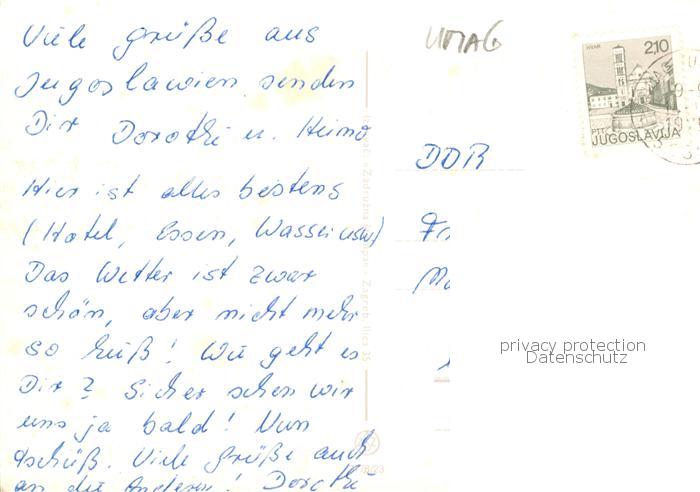 Viele Grüße aus
Jugoslawien senden
Dir Dorothe u. Heino
Hier ist alles bestens
(Hotel, Essen, Wasser usw)
Das Wetter ist zwar
schön, aber nicht mehr
so heiß! Wie geht es
Dir? Sicher sehen wir
uns ja bald! Nun
tschüß. Viele Grüße auch
an die Anderen! Dorothe
UMAG
HVAR 2,10
PTT JUGOSLAVIJA
DDR
privacy protection
Datenschutz
Zagreb Ilica 35